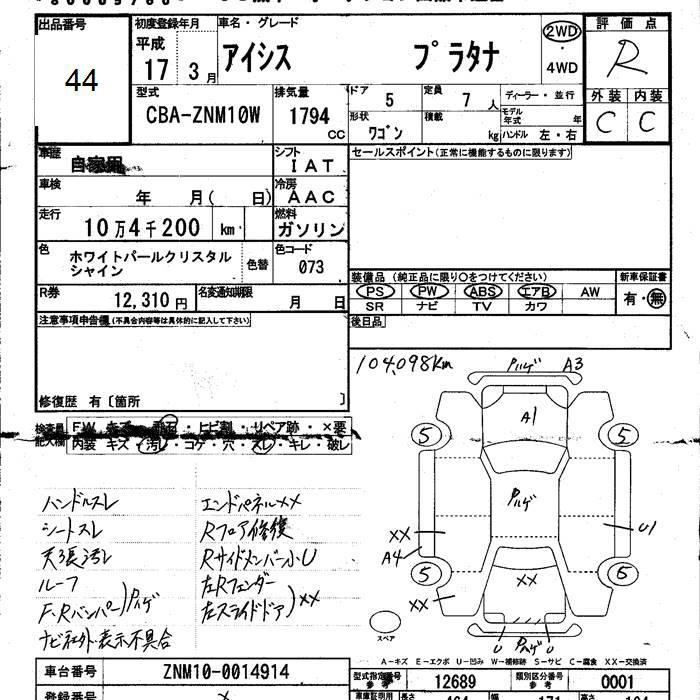 出品番号
44
初度登録年月
平成
17 3月
車名・グレード
アイシス プラタナ
2WD
・
4WD
評価点
R
外装 内装
C C
型式
CBA-ZNM10W
排気量
1794
CC
ドア 5
定員 7人
ディーラー・並行
形状 ワゴン
積載 kg
モデル年式 年
ハンドル 左・右
車歴 自家用
シフト IAT
セールスポイント(正常に機能するものに限ります)
車検 年 月( 日)
冷房 AAC
走行 10万4千200 km
燃料 ガソリン
色 ホワイトパールクリスタル
シャイン
色替
色コード
073
装備品(純正品に限り○をつけてください)
新車保証書
PS PW ABS エアB AW
有・無
SR ナビ TV カワ
R券 12,310円
名変通知期限 月 日
注意事項申告欄(不具合内容等は具体的に記入して下さい)
後日品
104,098km
修復歴 有〔箇所 〕
検査員
記入欄
F.W キズ・飛石・ヒビ割・リペア跡・×要
内装 キズ・汚レ・コゲ・穴・スレ・キレ・破レ
ハンドルスレ
シートスレ
天張汚レ
ルーフ
F、Rバンパー)ハゲ
ナビ社外・表示不具合
エンドパネルXX
Rフロア修復
Rサイドメンバー小U
左Rフェンダー
左スライドドア)XX
ハゲ A3
A1
5 5
ハゲ
XX
A4
U1
5 6
XX
XX
スペア
U ハゲ U
A－キズ E－エクボ U－凹み W－補修跡 S－サビ C－腐食 XX－交換済
車台番号 ZNM10-0014914
型式指定番号
参考
12689
類別区分番号
参考
0001
登録番号
車車証明用
参考
長さ 464
幅 171
高さ 164